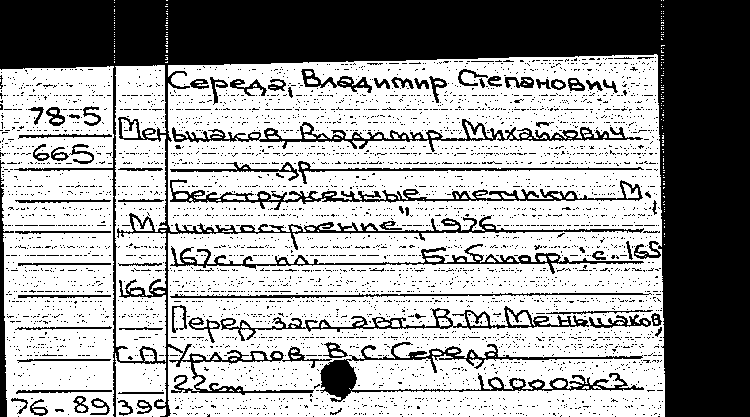 Середа, Владимир Степанович.
78-5
Меньшаков, Владимир Михайлович
665
и др
Бесстружечные метчики. М.,
„Машиностроение", 1976.
167с. с ил. Библиогр.: с. 165
166
Перед загл. авт.: В.М. Меньшаков,
Г.П. Урлапов, В.С. Середа.
22cm 10000экз.
76-89399